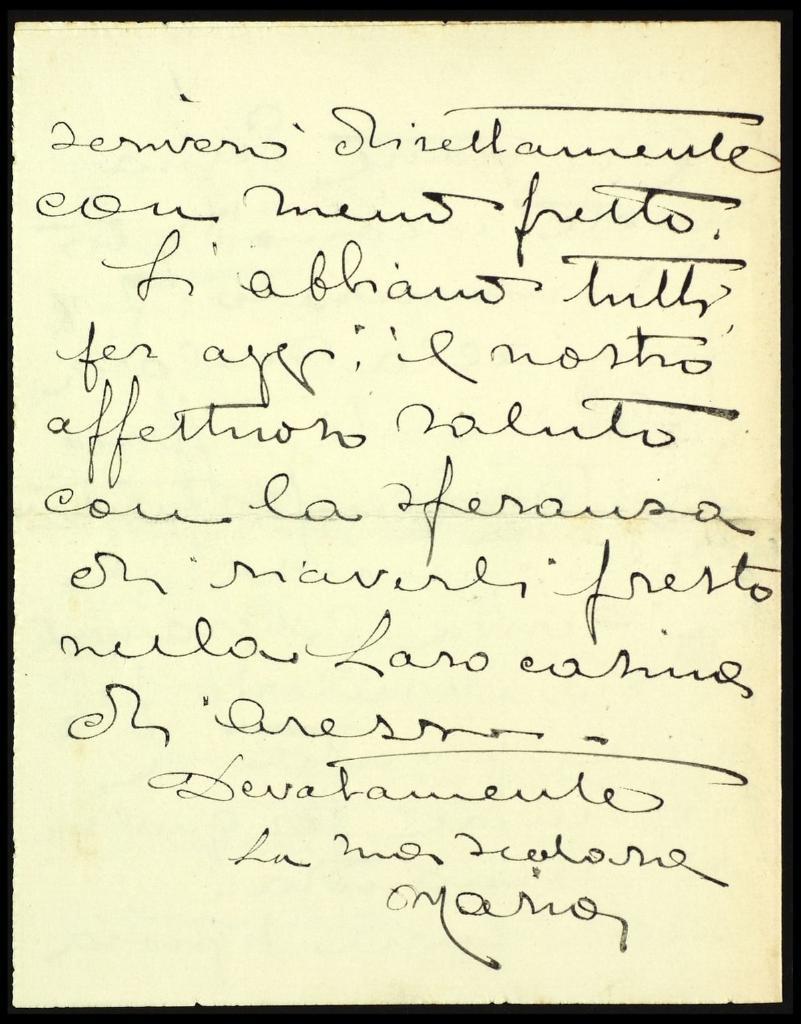 scriverò direttamente
con meno fretta.
Si abbiano tutti
per oggi il nostro
affettuoso saluto
con la speranza
di riaverli presto
nella Loro casina
di Aresso.
Devotamente
La sua scolara
Maria